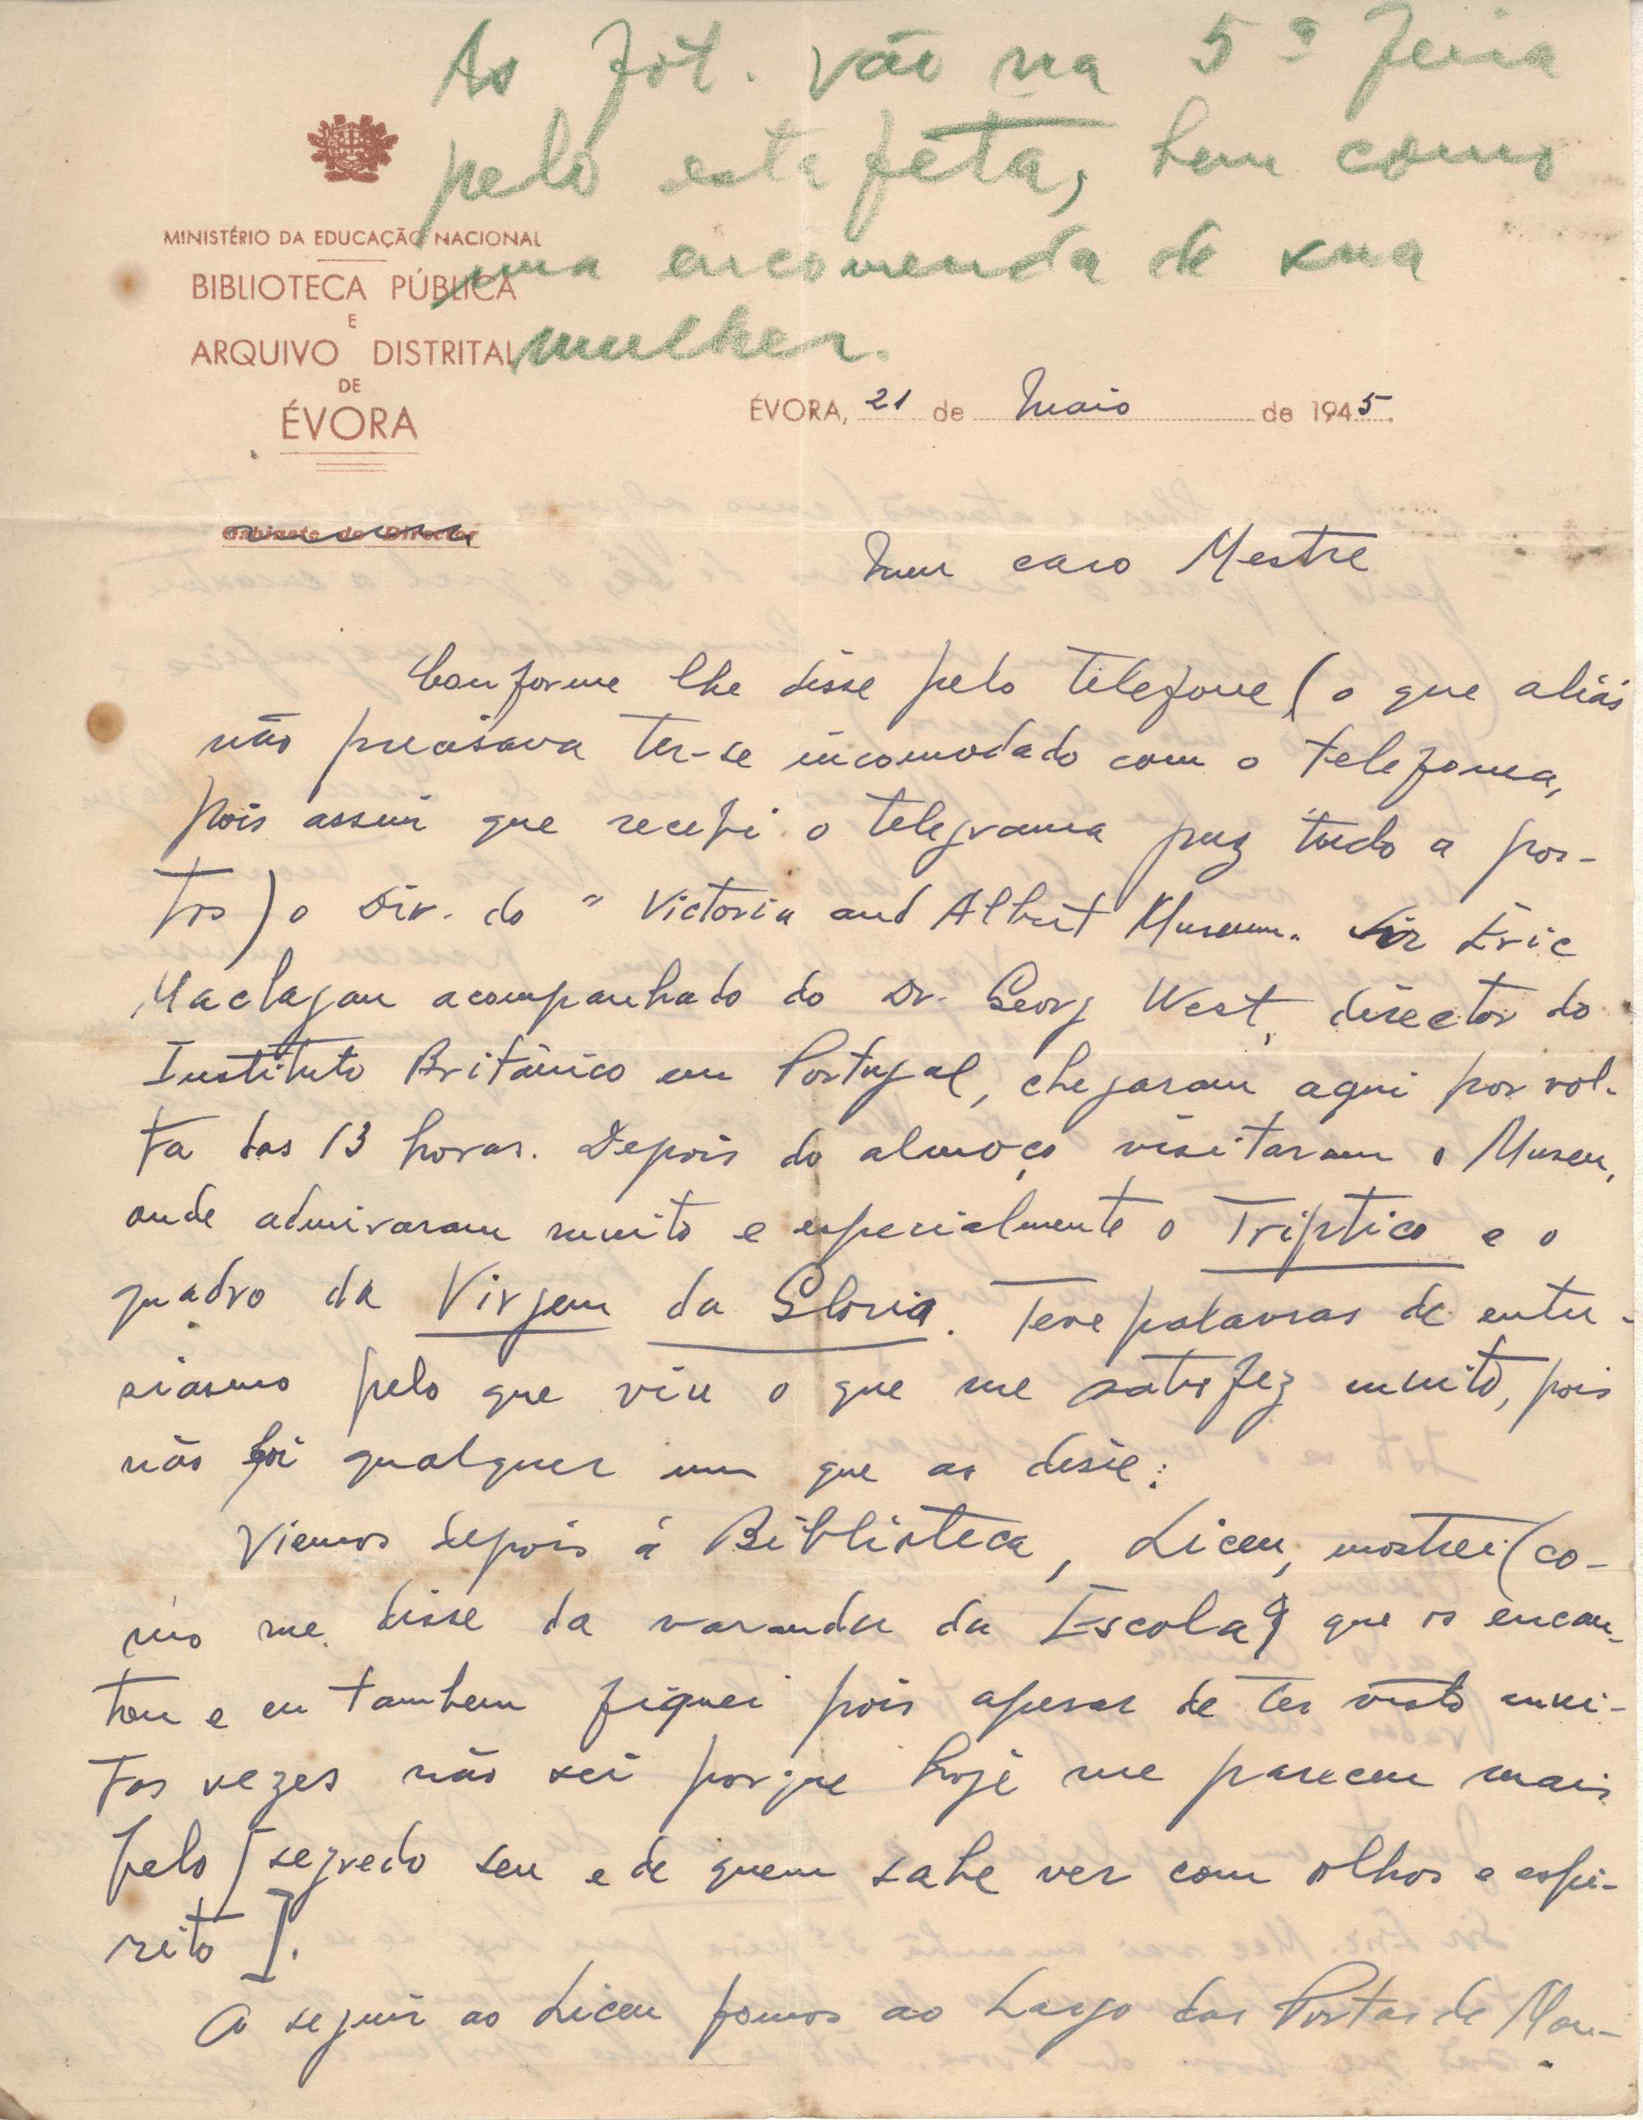 As fot. vão na 5ª feira
pelo estafeta, bem como
uma encomenda de sua
mulher.
MINISTÉRIO DA EDUCAÇÃO NACIONAL
BIBLIOTECA PÚBLICA
E
ARQUIVO DISTRITAL
DE
ÉVORA
ÉVORA, 21 de Maio de 1945.
Gabinete do Director
Meu caro Mestre
Conforme lhe disse pelo telefone (o que aliás
não precisava ter-se incomodado com o telefonema,
pois assim que recebi o telegrama puz tudo a pos-
tos) o Dir. do "Victoria and Albert Museum" Sir Eric
Maclagan acompanhado do Dr. Georg West, director do
Instituto Britânico em Portugal, chegaram aqui por vol-
ta das 13 horas. Depois do almoço visitaram o Museu,
onde admiraram muito e especialmente o Triptico e o
quadro da Virgem da Gloria. Teve palavras de entu-
siasmo pelo que viu o que me satisfez muito, pois
não foi qualquer um que as disse.
Viemos depois á Biblioteca, Liceu, mostrei (co-
mo me disse da varanda da Escola) que os encan-
tou e eu tambem fiquei pois apesar de ter visto mui-
tas vezes não sei porque hoje me pareceu mais
belo [segredo seu e de quem sabe ver com olhos e espi-
rito].
A seguir ao Liceu fomos ao Largo das Portas de Mou-